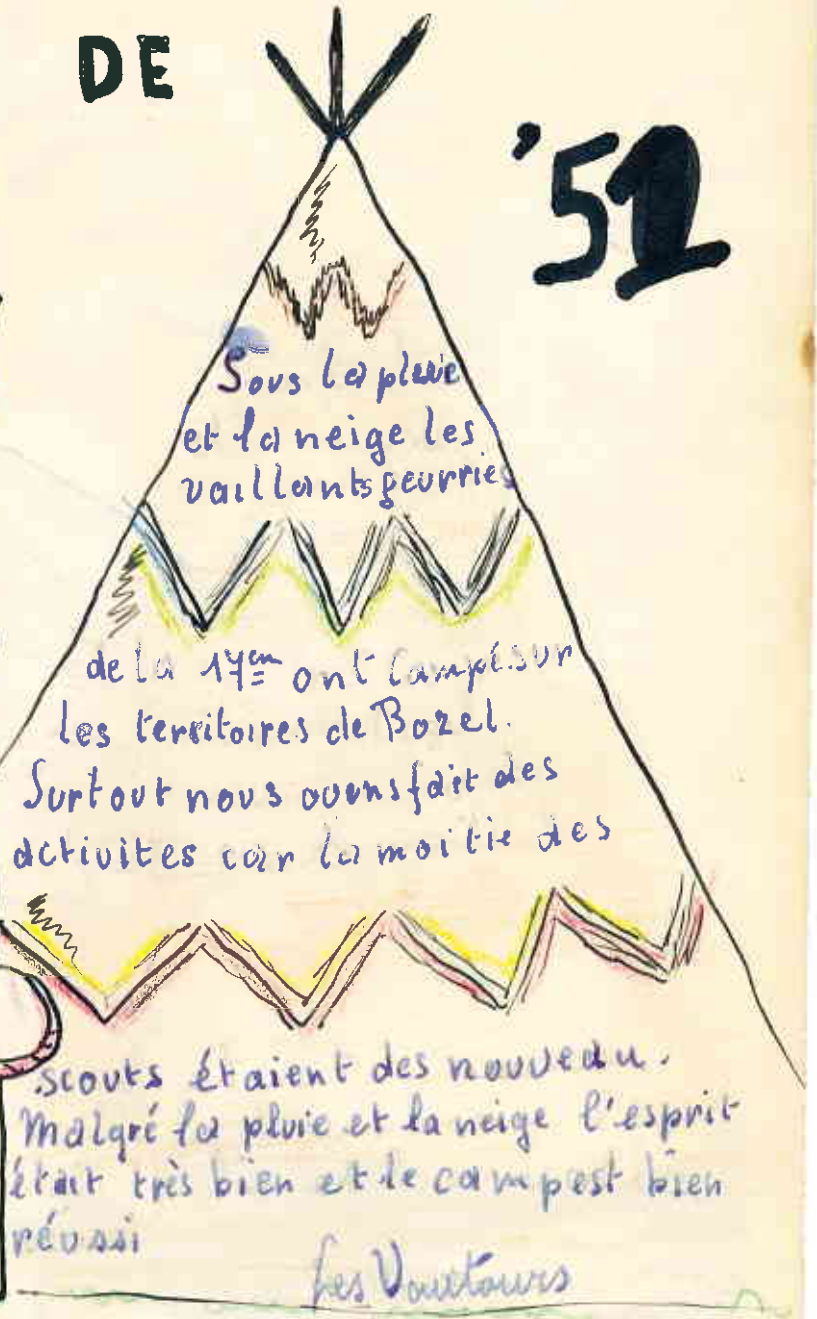 DE
'51
Sous la pluie
et la neige les
vaillants geurriés
de la 17em ont campé sur
les territoires de Bozel.
Surtout nous avons fait des
activites car la moitie des
scouts étaient des nouveau.
Malgré la pluie et la neige l'esprit
était très bien et le camp est bien
réussi
Les Vautours